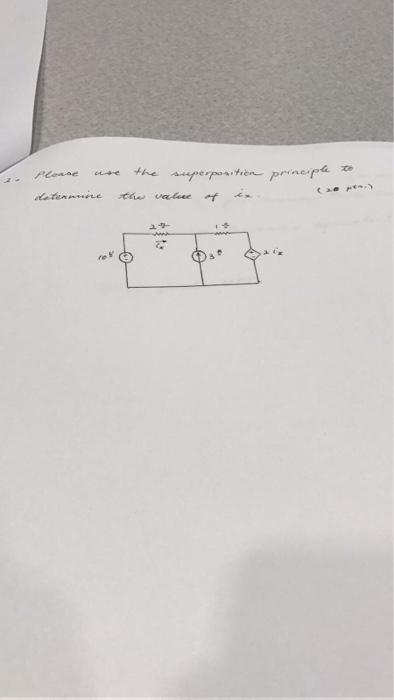 2. Please use the superposition principle to
determine the value of ix. (20 pts.)
2 Ω 1 Ω
ix
10 V 3 A 2 ix